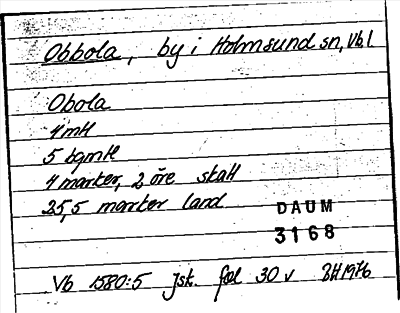 Obbola, by i Holmsund sn, Vb l.
Obola
4 mtl
5 bgmtl
4 marker, 2 öre skatt
25,5 marker land
DAUM
3168
Vb 1580:5 Jsk. fol 30 v BH 1976